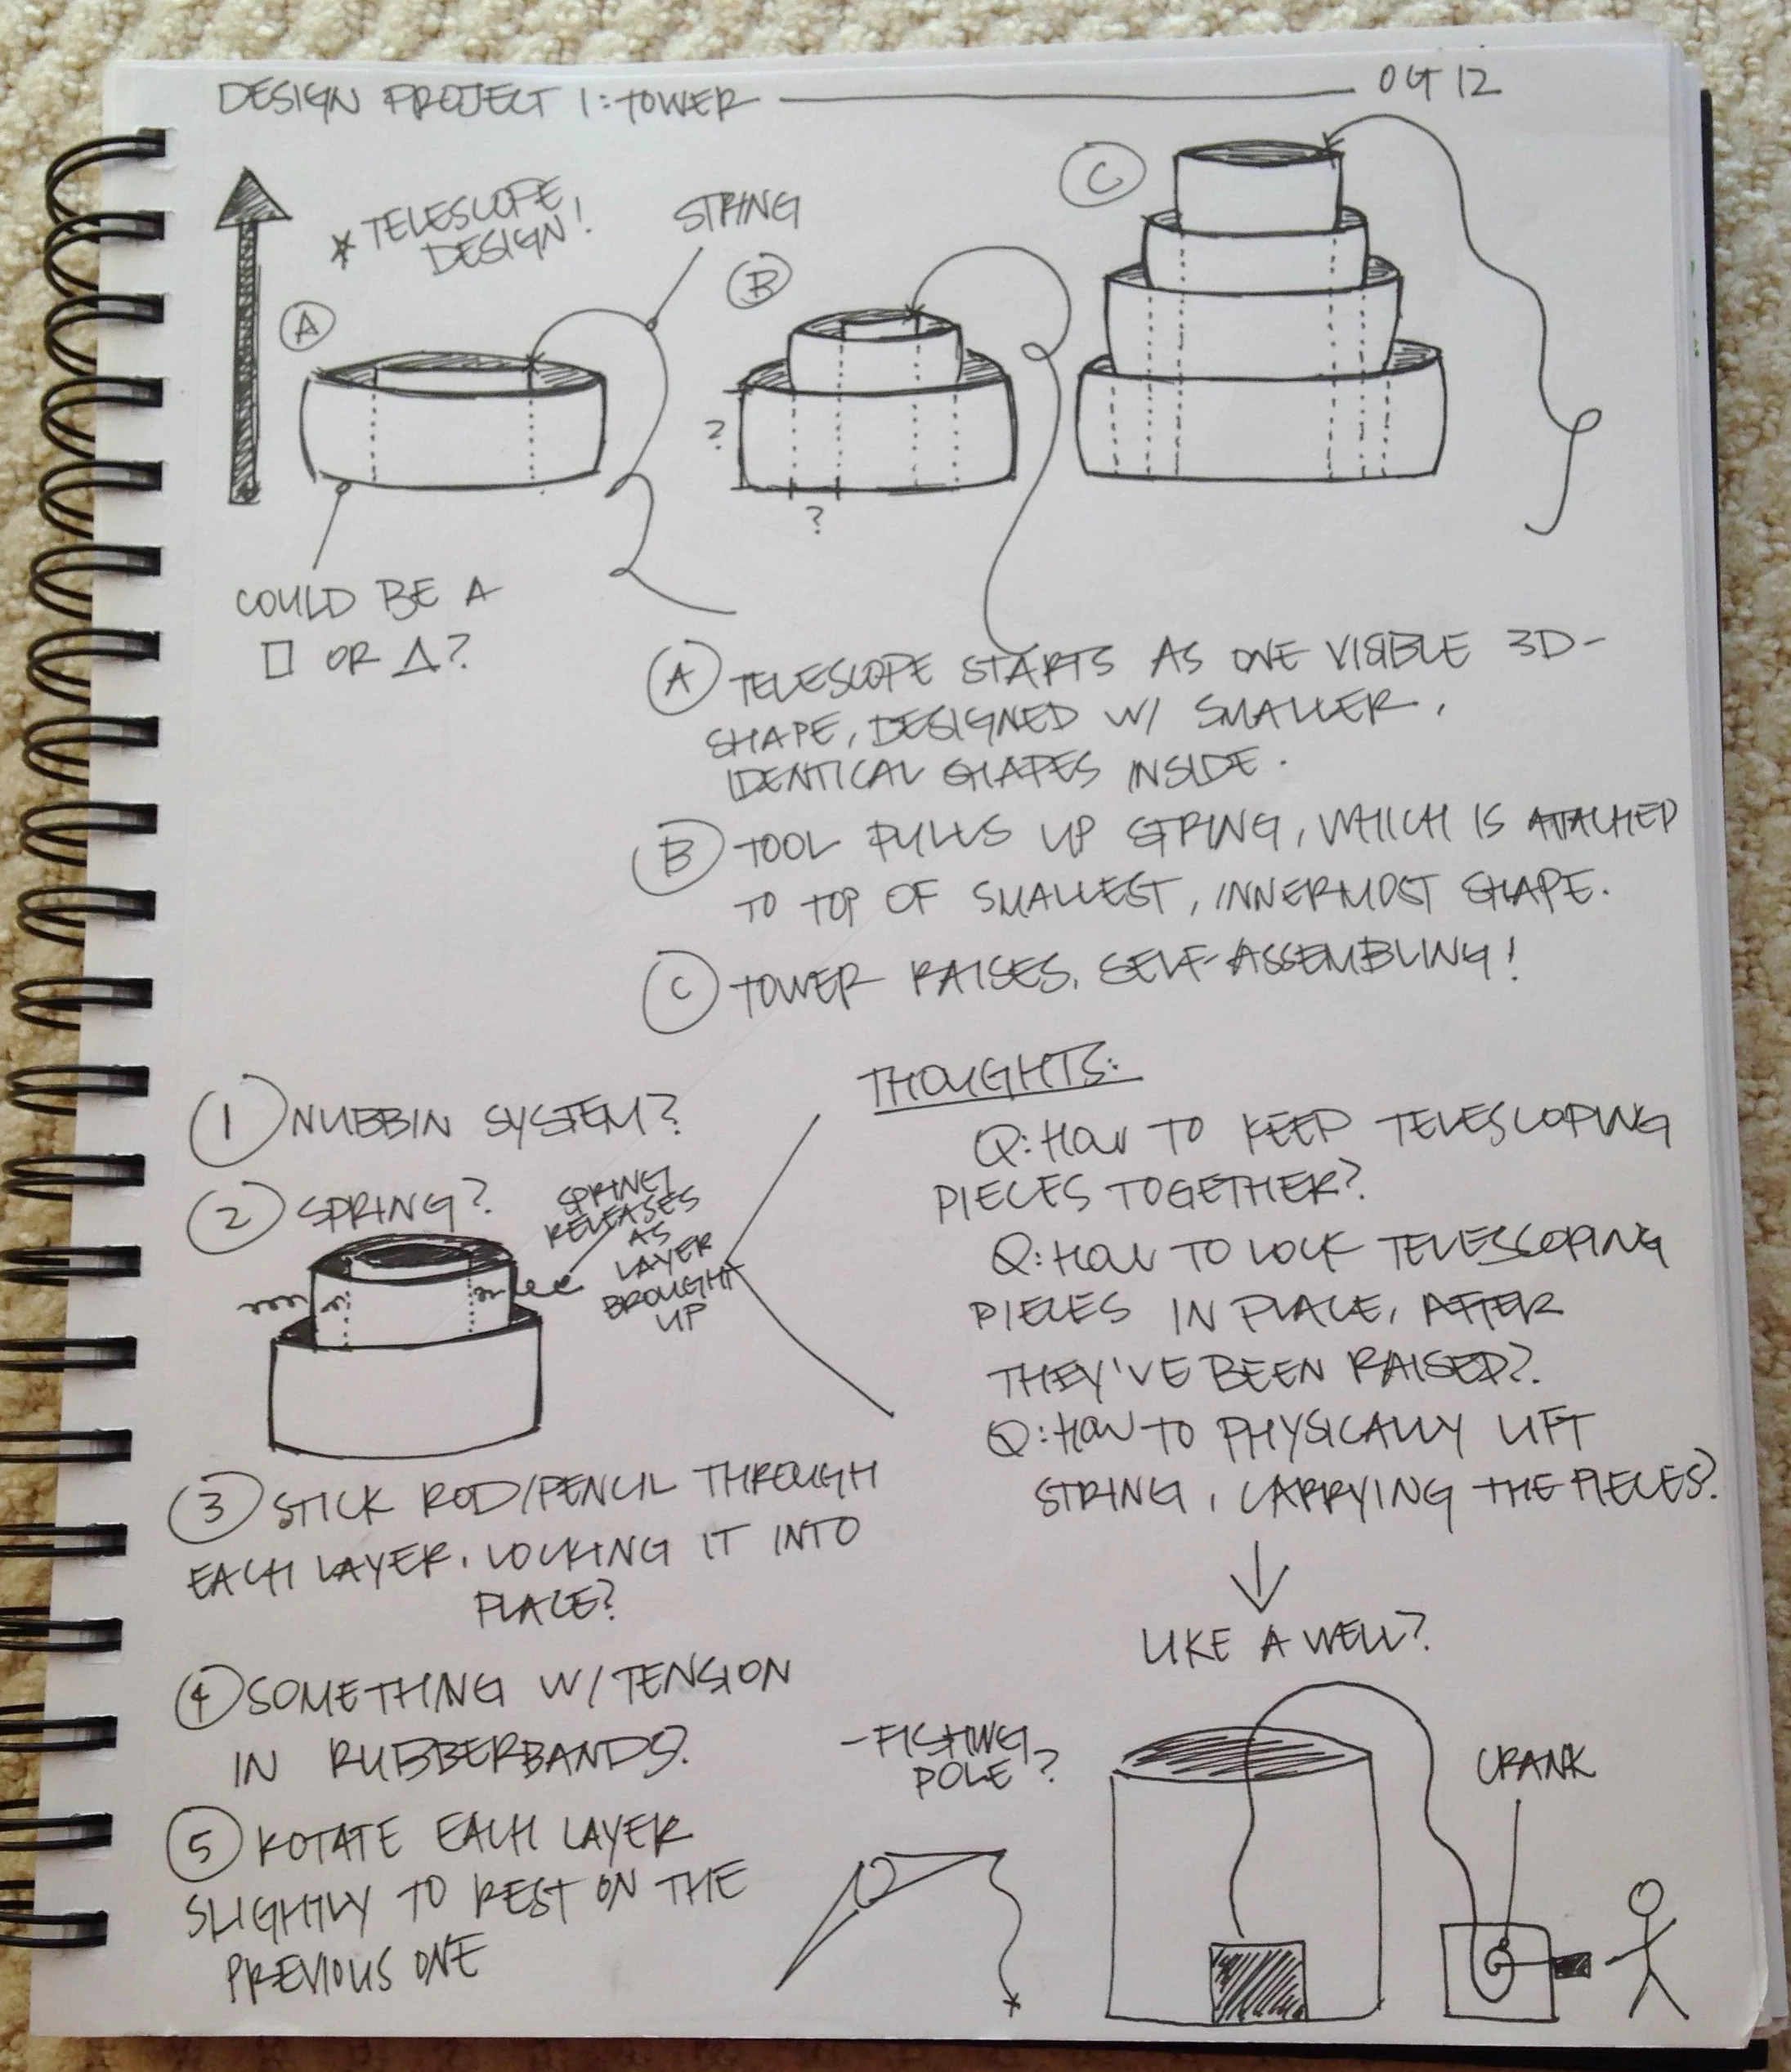 DESIGN PROJECT 1: TOWER
OCT 12
* TELESCOPE
DESIGN!
STRING
A
B
C
?
?
COULD BE A
□ OR △?
A TELESCOPE STARTS AS ONE VISIBLE 3D-
SHAPE, DESIGNED W/ SMALLER,
IDENTICAL SHAPES INSIDE.
B TOOL PULLS UP STRING, WHICH IS ATTACHED
TO TOP OF SMALLEST, INNERMOST SHAPE.
C TOWER RAISES, SELF-ASSEMBLING!
THOUGHTS:
Q: HOW TO KEEP TELESCOPING
PIECES TOGETHER?
Q: HOW TO LOCK TELESCOPING
PIECES IN PLACE, AFTER
THEY'VE BEEN RAISED?
Q: HOW TO PHYSICALLY LIFT
STRING, CARRYING THE PIECES?
LIKE A WELL?
1 NUBBIN SYSTEM?
2 SPRING?
SPRING
RELEASES
AS
LAYER
BROUGHT
UP
3 STICK ROD/PENCIL THROUGH
EACH LAYER, LOCKING IT INTO
PLACE?
4 SOMETHING W/ TENSION
IN RUBBERBANDS?
5 ROTATE EACH LAYER
SLIGHTLY TO REST ON THE
PREVIOUS ONE
- FISHING
POLE?
CRANK